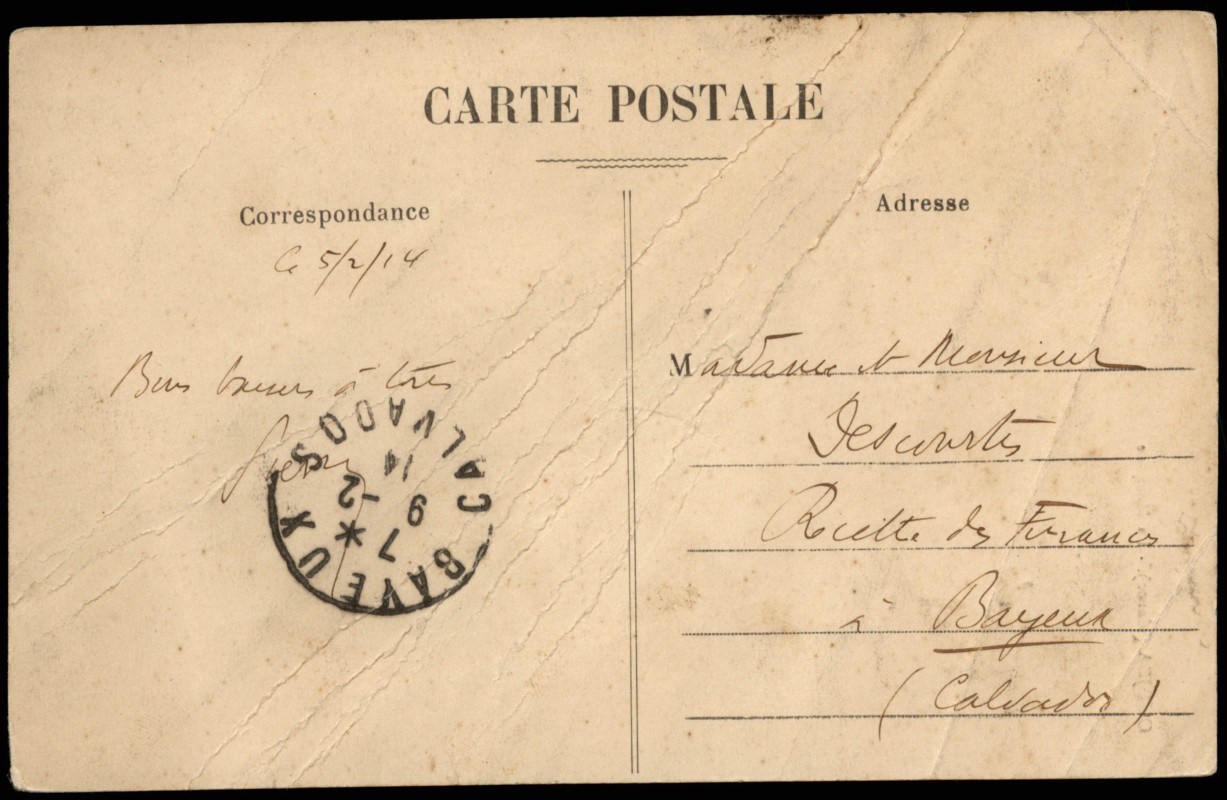 CARTE POSTALE
Correspondance
Ce 5/2/14
Bons baisers à tous
Adresse
Madame et Monsieur
Descourtis
Recette des Finances
à Bayeux
(Calvados)
BAYEUX
CALVADOS
7 *
9 -2
14